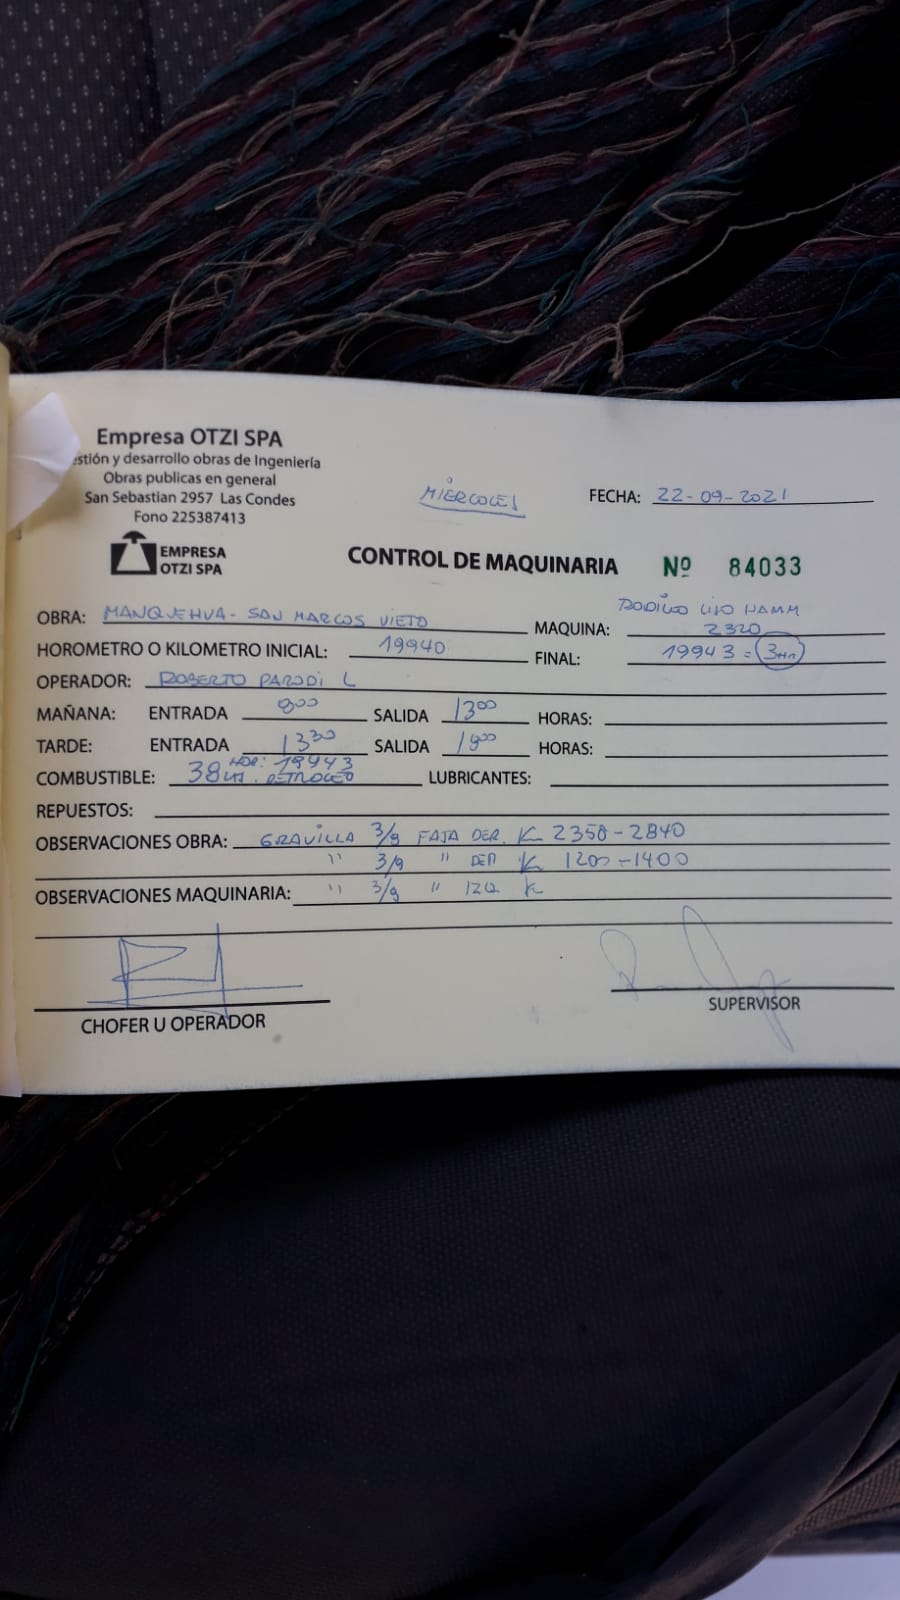 Empresa OTZI SPA
stión y desarrollo obras de Ingeniería
Obras publicas en general
San Sebastian 2957 Las Condes
Fono 225387413
EMPRESA
OTZI SPA
MIERCOLES
FECHA: 22-09-2021
CONTROL DE MAQUINARIA Nº 84033
OBRA: MANQUEHUA - SAN MARCOS VIETO
RODILLO LISO HAMM
MAQUINA: 2320
HOROMETRO O KILOMETRO INICIAL: 19940
FINAL: 19943 = 3Hn
OPERADOR: ROBERTO PARODI L
MAÑANA: ENTRADA 800 SALIDA 1300 HORAS:
TARDE: ENTRADA 1330 SALIDA 1800 HORAS:
HOR: 19943
COMBUSTIBLE: 38 LTS. PETROLEO LUBRICANTES:
REPUESTOS:
OBSERVACIONES OBRA: GRAVILLA 3/8 FAJA DER. K 2350-2840
" 3/8 " DER K 1200-1400
OBSERVACIONES MAQUINARIA: " 3/8 " IZQ K
CHOFER U OPERADOR
SUPERVISOR